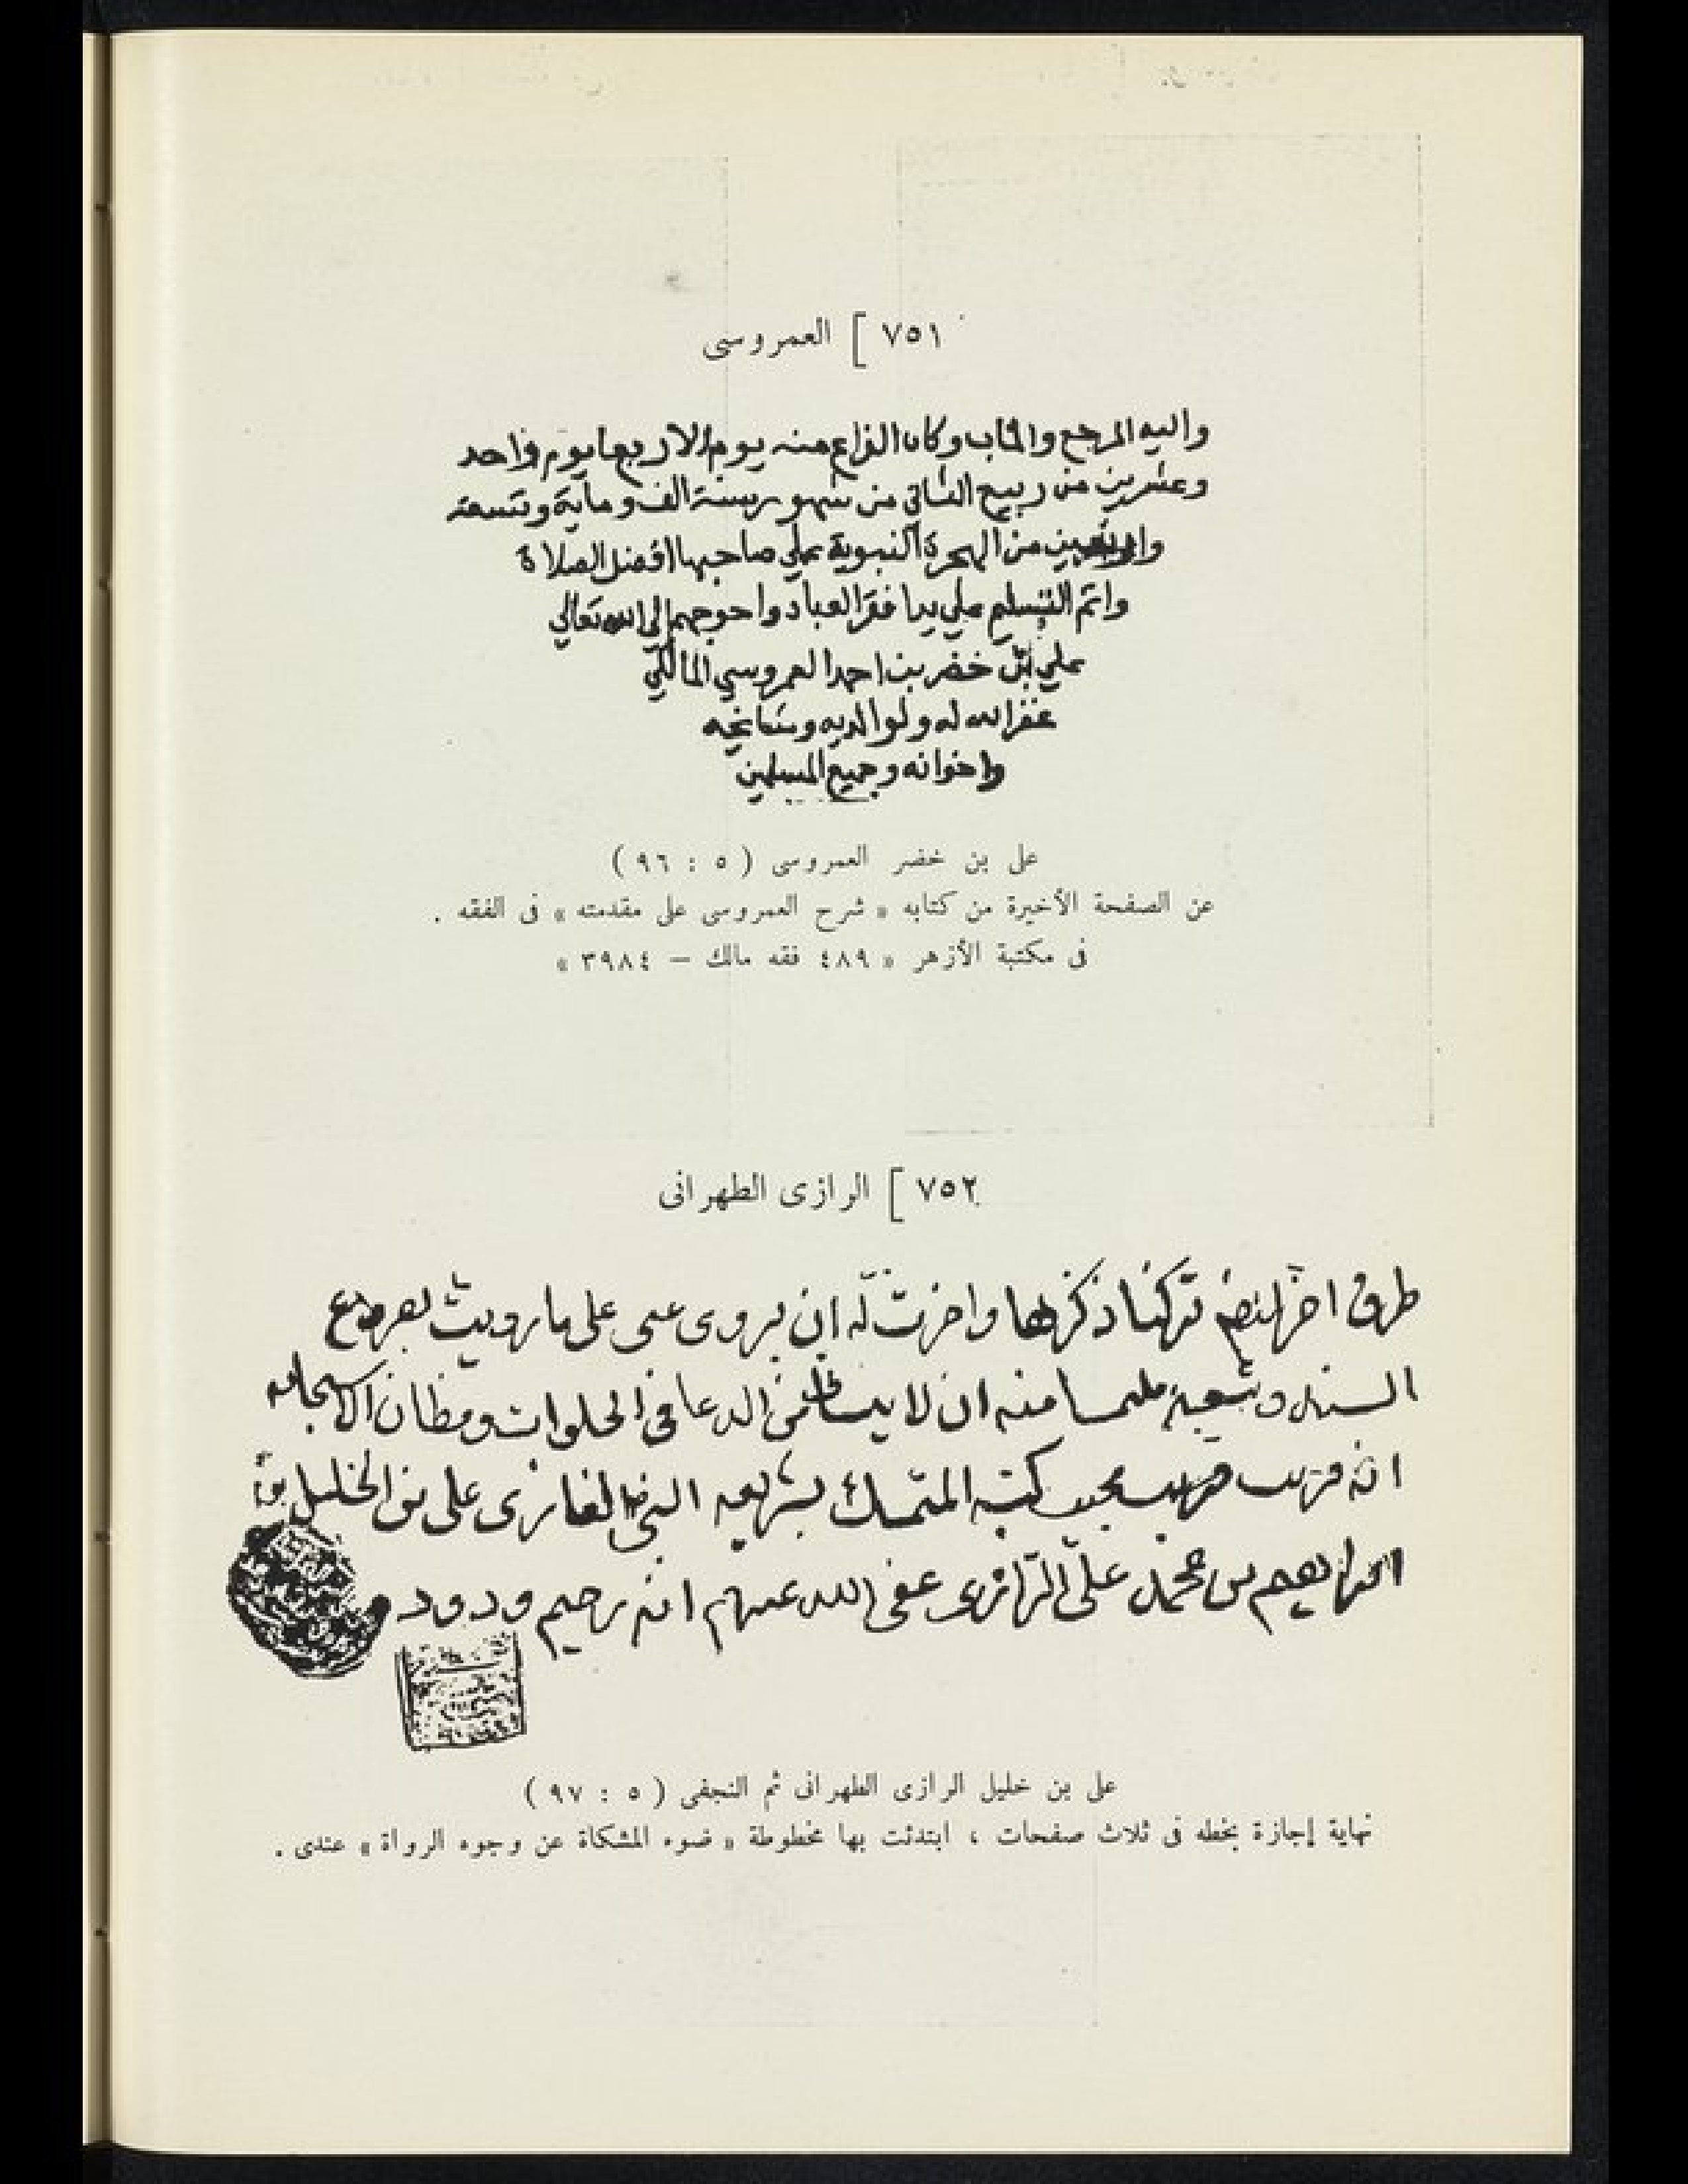 ٧٥١ ] العمروسى
واليه المرجع والماب وكان الفراغ منه يوم الاربعا يوم واحد
وعشرين من ربيع الثاني من شهور سنة الف ومائة وتسعة
واربعين من الهجرة النبوية علي صاحبها افضل الصلاة
واتم التسليم علي يد افقر العباد واحوجهم الي الله تعالي
علي ابن خضر بن احمد العمروسي المالكي
غفر الله له ولوالديه ومشايخه
واخوانه وجميع المسلمين
على بن خضر العمروسى ( ٥ : ٩٦ )
عن الصفحة الأخيرة من كتابه « شرح العمروسى على مقدمته » فى الفقه .
فى مكتبة الأزهر « ٤٨٩ فقه مالك – ٣٩٨٤ »
٧٥٢ ] الرازى الطهرانى
طرق اخر تركنا ذكرها واجزت له ان يروى عنى على ما رويت
منه ان لا ينسانى من الدعا فى الخلوات ومظان الاستجابه
انه قريب مجيب كتبه المتمسك بشريعه النبى الغازى على بن الخليل بن
ابراهيم بن محمد على الرازى عفى الله عنهم انه رحيم ودود
على بن خليل الرازى الطهرانى ثم النجفى ( ٥ : ٩٧ )
نهاية إجازة بخطه فى ثلاث صفحات ، ابتدئت بها مخطوطة « ضوء المشكاة عن وجوه الرواة » عندى .